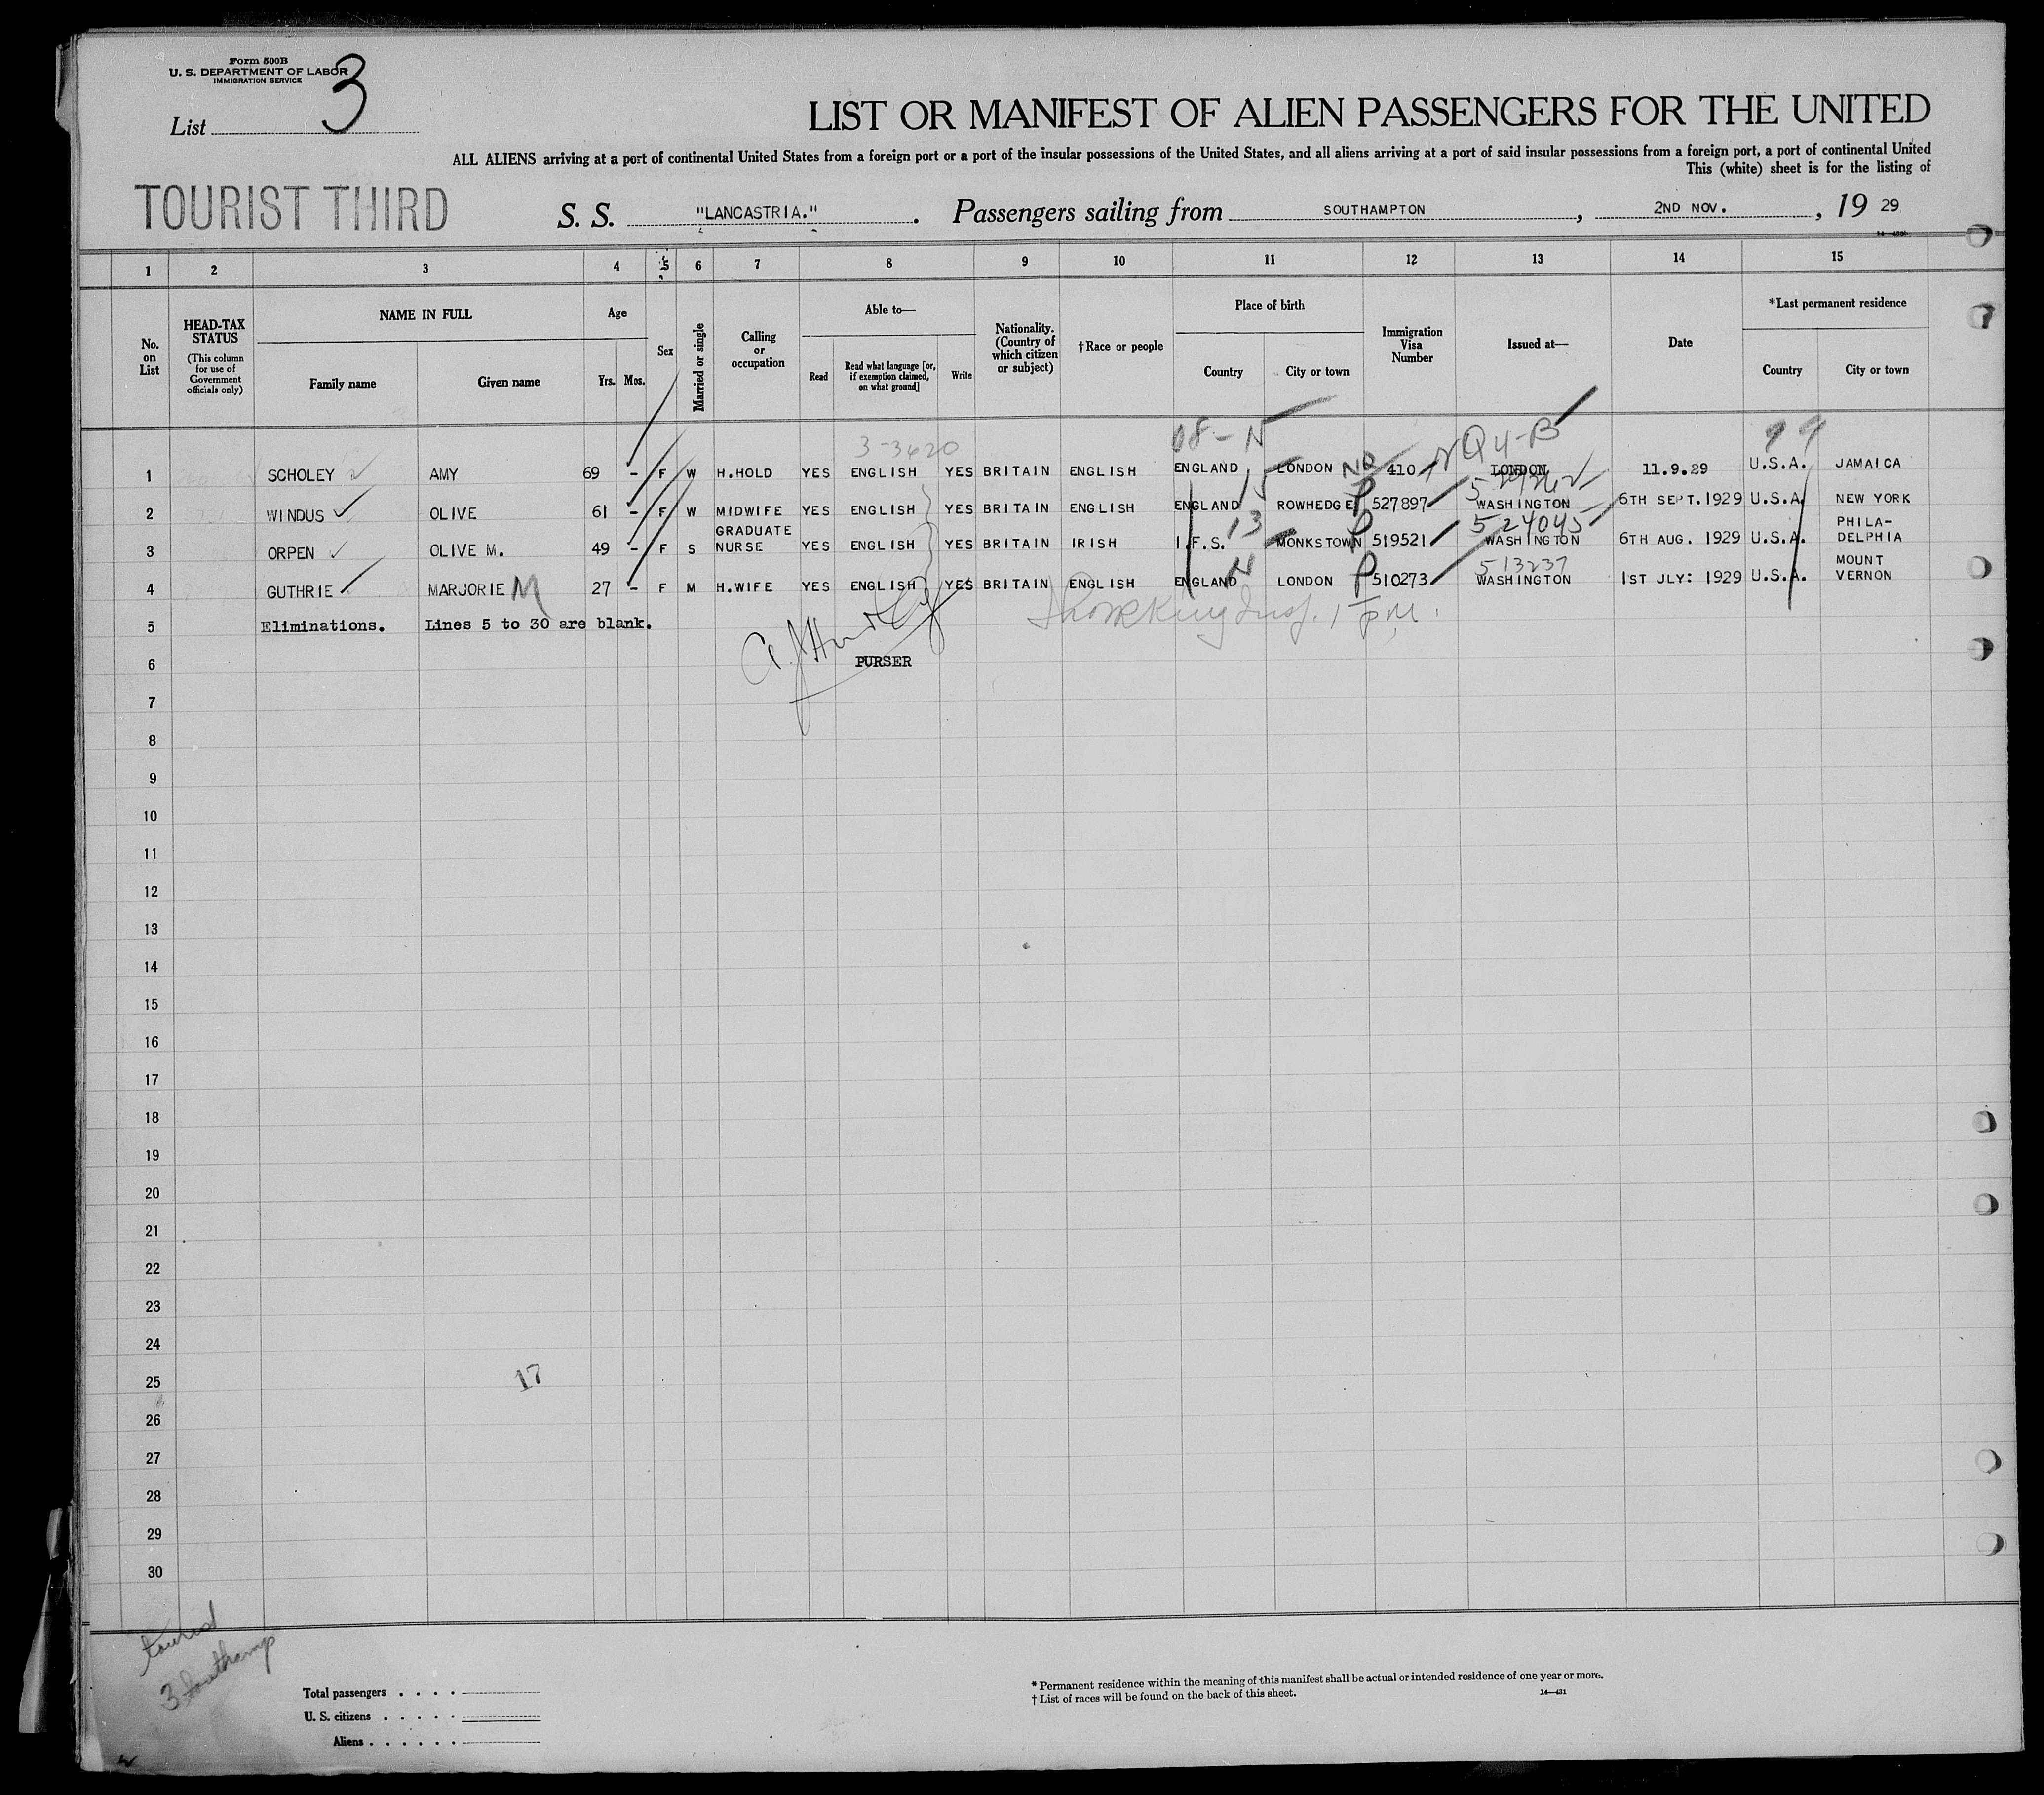 Form 500B
U. S. DEPARTMENT OF LABOR
IMMIGRATION SERVICE
List 3
LIST OR MANIFEST OF ALIEN PASSENGERS FOR THE UNITED
ALL ALIENS arriving at a port of continental United States from a foreign port or a port of the insular possessions of the United States, and all aliens arriving at a port of said insular possessions from a foreign port, a port of continental United
This (white) sheet is for the listing of
TOURIST THIRD
S. S. "LANCASTRIA." . Passengers sailing from SOUTHAMPTON , 2ND NOV. , 19 29
1 2 3 4 5 6 7 8 9 10 11 12 13 14 15
No. on List
HEAD-TAX STATUS (This column for use of Government officials only)
NAME IN FULL
Family name Given name
Age
Yrs. Mos.
Sex
Married or single
Calling or occupation
Able to—
Read Read what language [or, if exemption claimed, on what ground] Write
Nationality. (Country of which citizen or subject)
†Race or people
Place of birth
Country City or town
Immigration Visa Number
Issued at—
Date
*Last permanent residence
Country City or town
3-3620 08-N NQ4-B 99
1 SCHOLEY AMY 69 - F W H.HOLD YES ENGLISH YES BRITAIN ENGLISH ENGLAND LONDON NO 410 LONDON 11.9.29 U.S.A. JAMAICA
2 WINDUS OLIVE 61 - F W MIDWIFE YES ENGLISH YES BRITAIN ENGLISH ENGLAND 15 ROWHEDGE P 527897 WASHINGTON 6TH SEPT. 1929 U.S.A. NEW YORK
3 ORPEN OLIVE M. 49 - F S GRADUATE NURSE YES ENGLISH YES BRITAIN IRISH I.F.S. 13 MONKSTOWN P 519521 524045 WASHINGTON 6TH AUG. 1929 U.S.A. PHILA-DELPHIA
4 GUTHRIE MARJORIE M 27 - F M H.WIFE YES ENGLISH YES BRITAIN ENGLISH ENGLAND N LONDON P 510273 513237 WASHINGTON 1ST JLY: 1929 U.S.A. MOUNT VERNON
5 Eliminations. Lines 5 to 30 are blank.
6 PURSER
7
8
9
10
11
12
13
14
15
16
17
18
19
20
21
22
23
24
25 17
26
27
28
29
30
tourist
3 Southamp
Total passengers . . . .
U. S. citizens . . . . .
Aliens . . . . . .
* Permanent residence within the meaning of this manifest shall be actual or intended residence of one year or more.
† List of races will be found on the back of this sheet.
14—431